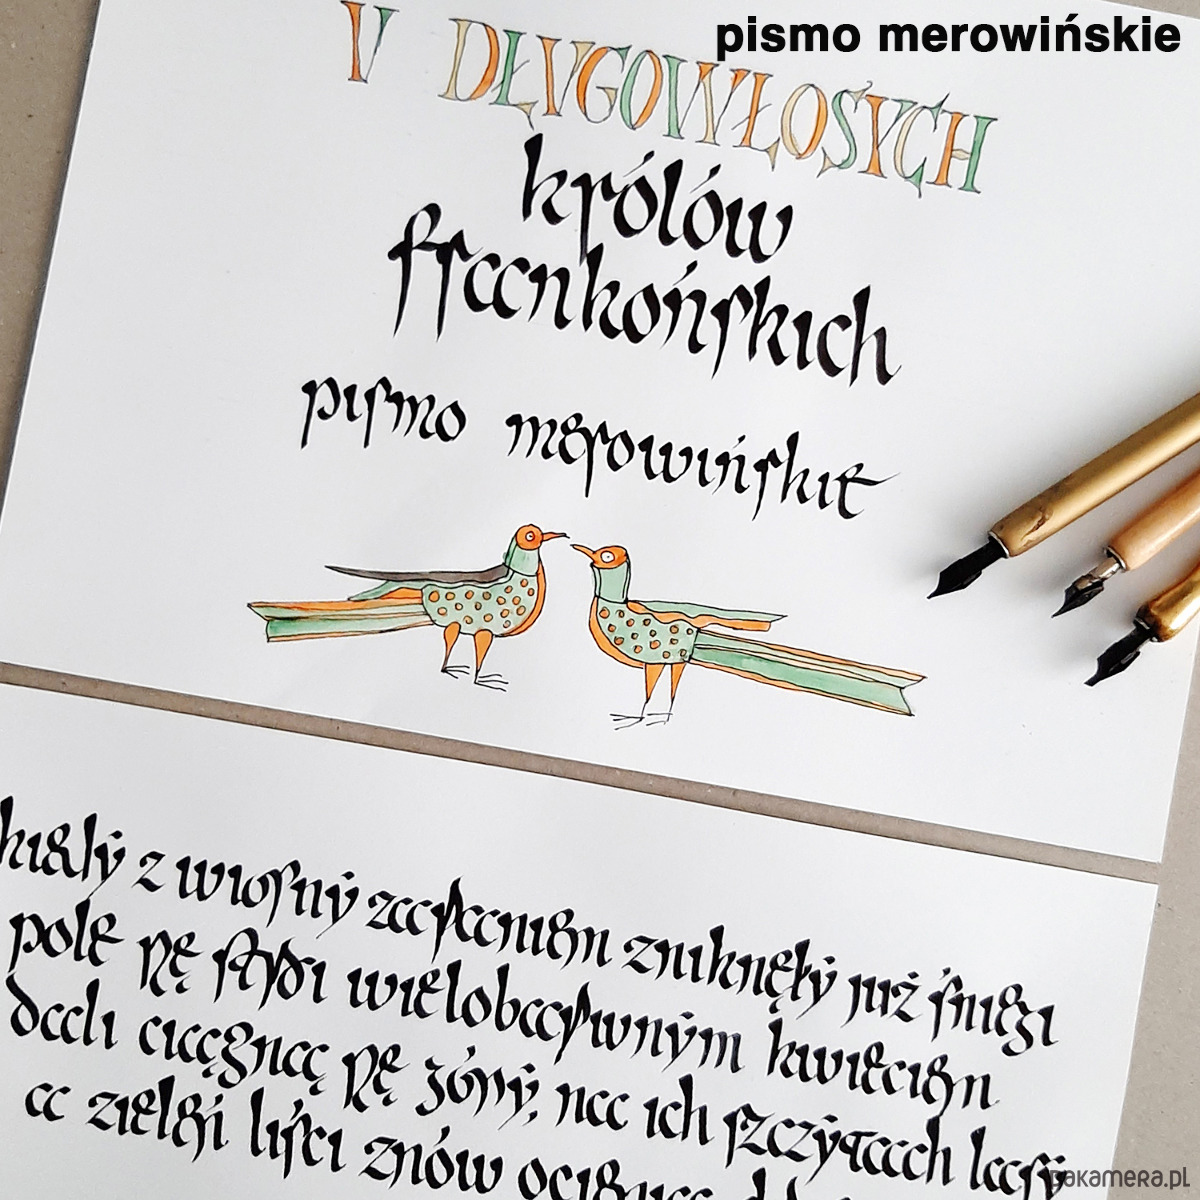 pismo merowińskie
V DŁVGOWŁOSYCH
królów
frankońskich
pismo merowińskie
kiedy z wiosny zaraniem zniknęły już śniegi
pole się stroi wielobarwnym kwieciem
dali ciągną się góry, na ich szczytach lasy
a liści znów
pakamera.pl